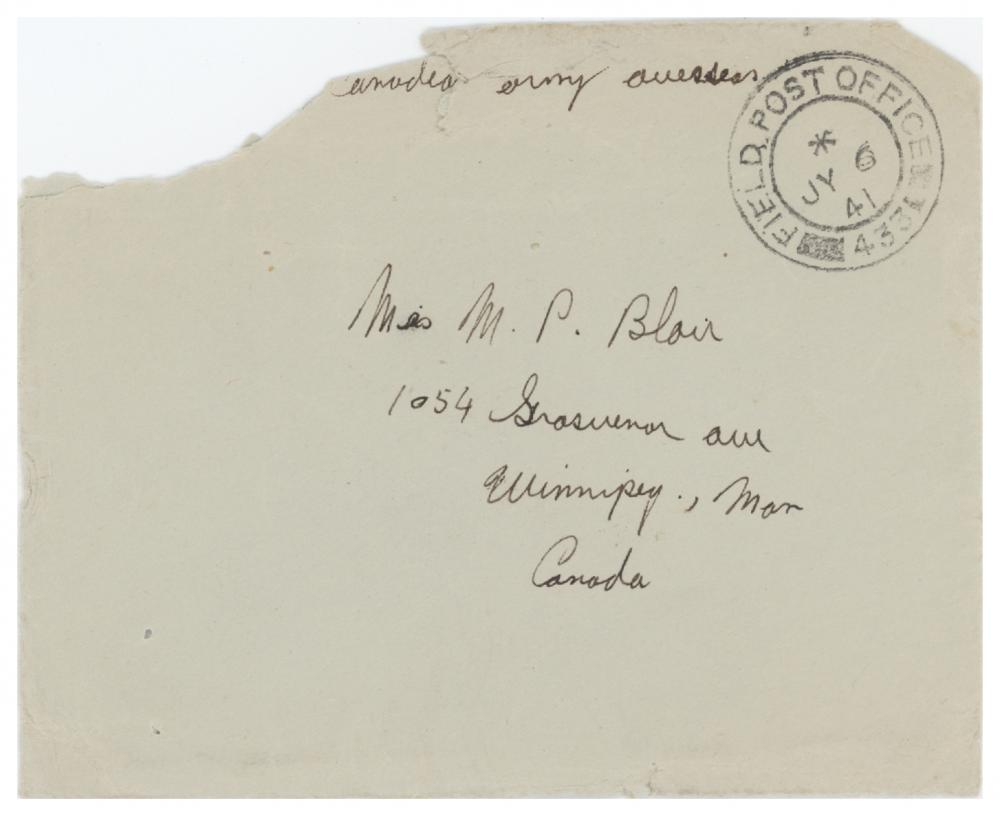 Canadian army overseas
FIELD POST OFFICE 433
* 
JY 6
41
Miss M. P. Blair
1054 Grosvenor ave
Winnipeg., Man
Canada